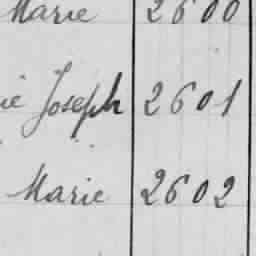 Marie 2600
ie Joseph 2601
Marie 2602